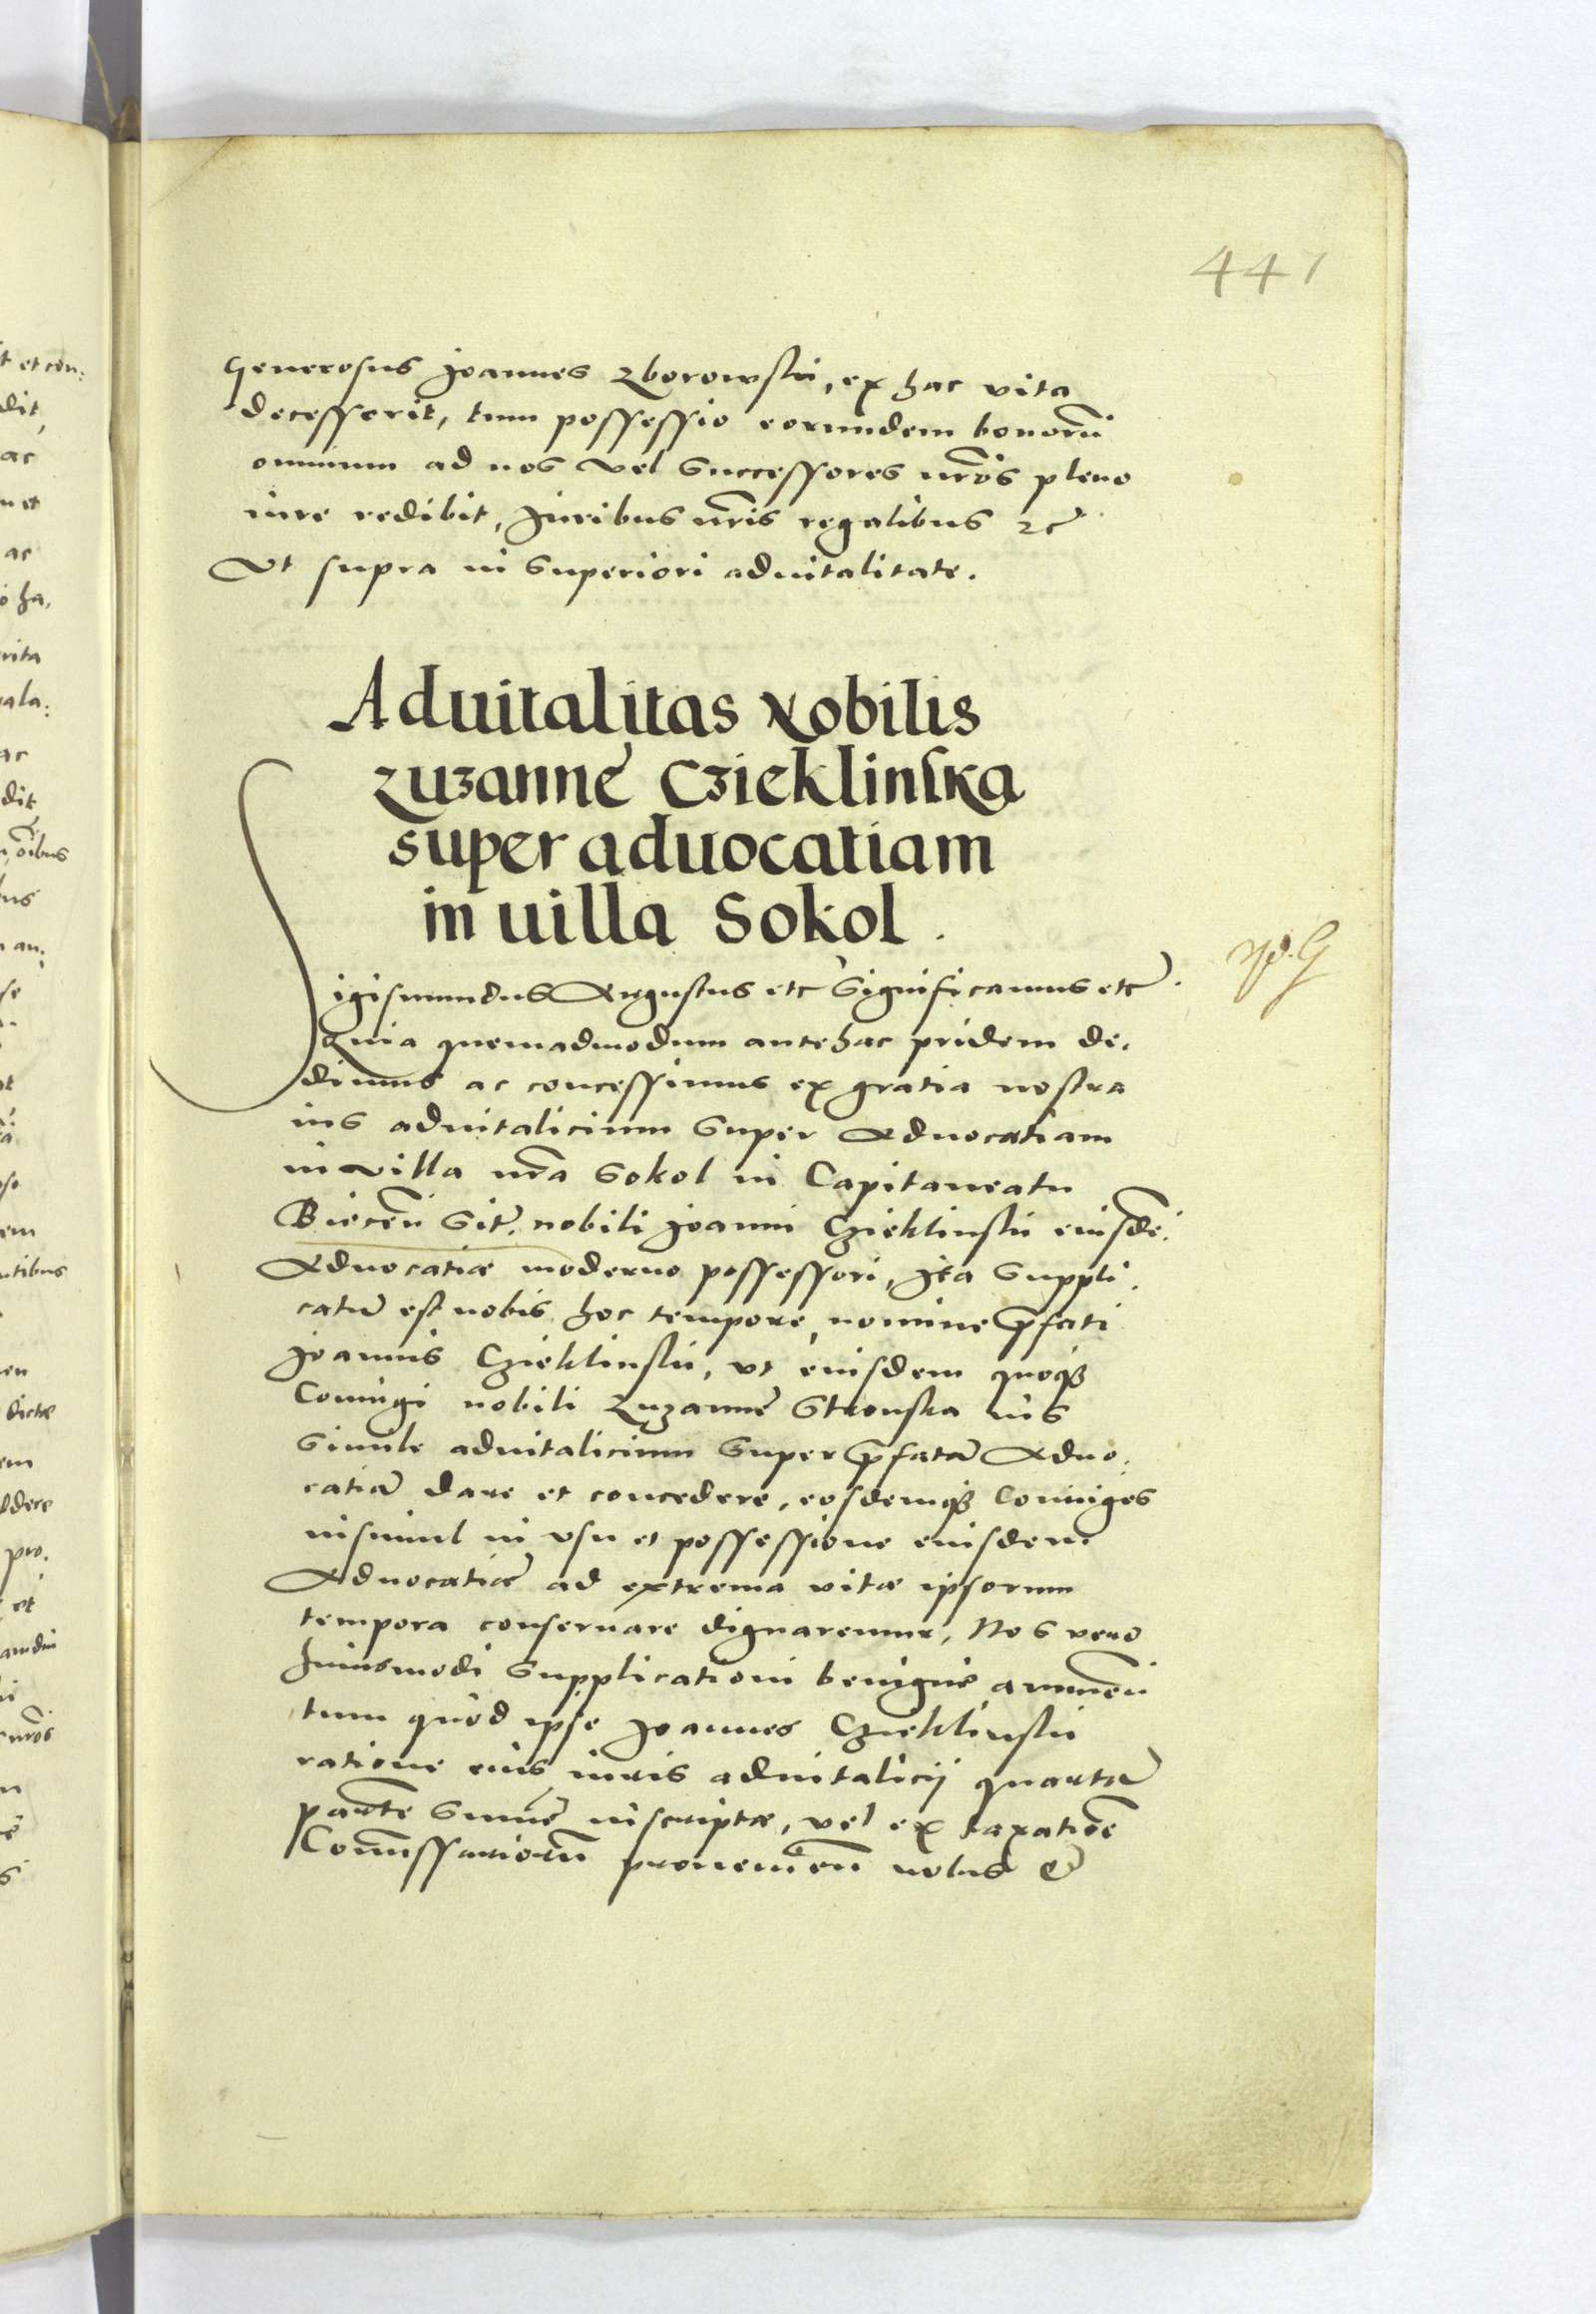 441
generosus Joannes Zborowski, ex hac vita
decesserit, tum possessio eorundem bonorũ
omnium ad nos vel Successores nr̃os pleno
iure redibit, Juribus nr̃is regalibus etc̃
Vt supra in Superiori aduitalitate.
Aduitalitas Nobilis
Zuzanne Czieklinska
super aduocatiam
in uilla Sokol.
Sigismundus Augustus etc Significamus etc̃.
Quia quemadmodum antehac pridem de,
dimus ac concessimus ex gratia nostra
ius aduitalicium Super Aduocatiam
in villa nr̃a Sokol in Capitaneatu
Biecen̄ Sit̃. nobili Joanni Czieklinski eiusdẽ,
Aduocatiæ moderno possessori, Ita Suppli,
catũ est nobis hoc tempore, nomine p̃fati
Joannis Czieklinski, vt eiusdem quoqȝ
Coniugi nobili Zuzanne Stronska ius
Simile aduitalicium Super p̃fatã Aduo,
catiã dare et concedere, eosdemqȝ Coniuges
insimul in vsu et possessione eiusdem
Aduocatiæ ad extrema vitæ ipsorum
tempora conseruare dignaremur, Nos vero
huiusmodi Supplicationi benigne annuen̄
tum quod ipse Joannes Czieklinski
ratione eius iuris aduitalicij quartã
partẽ Sum̃e inscriptæ, vel ex taxatiõe
Com̃issariorũ prouenien̄ nobis &